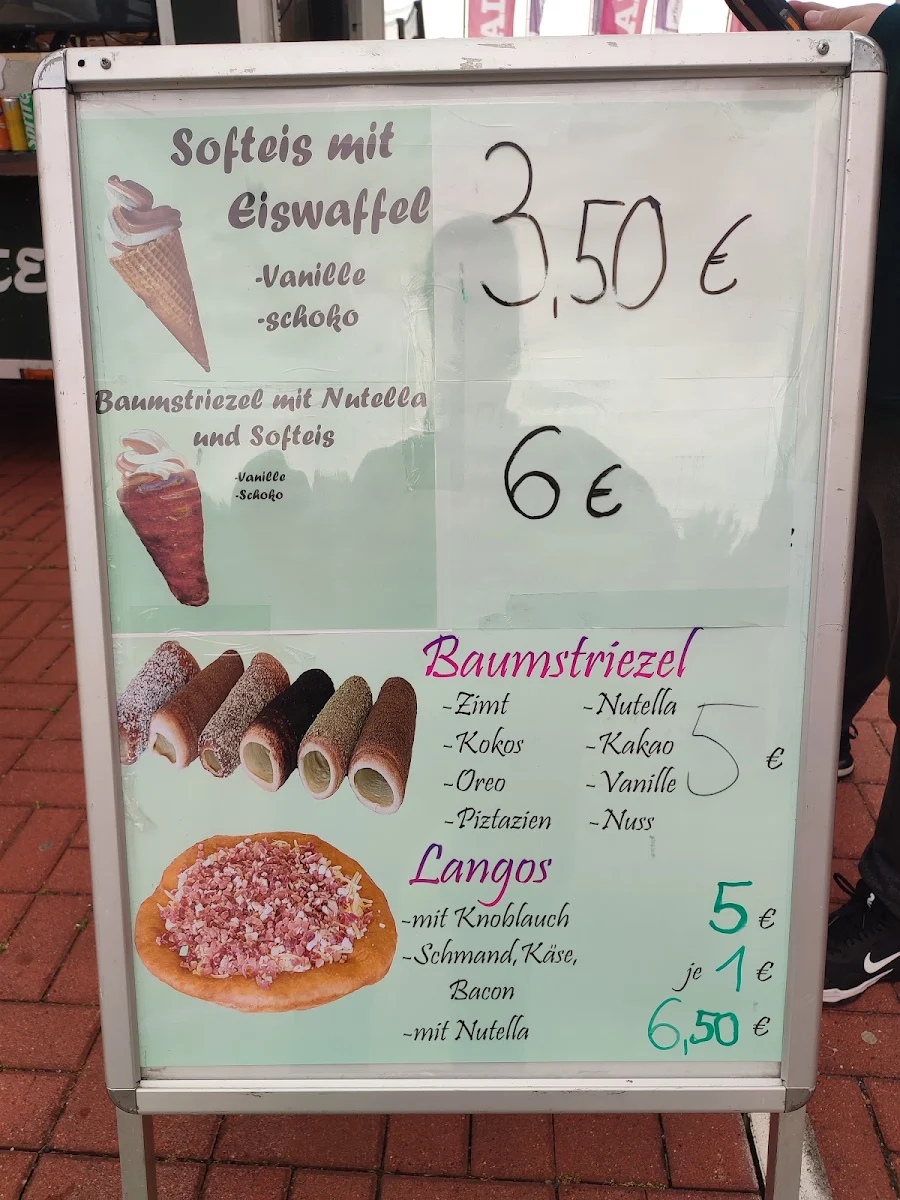 Softeis mit
Eiswaffel
-Vanille
-schoko
3,50 €
Baumstriezel mit Nutella
und Softeis
-Vanille
-Schoko
6 €
Baumstriezel
-Zimt -Nutella
-Kokos -Kakao
-Oreo -Vanille
-Piztazien -Nuss
5 €
Langos
-mit Knoblauch 5 €
-Schmand, Käse, je 1 €
Bacon
-mit Nutella 6,50 €